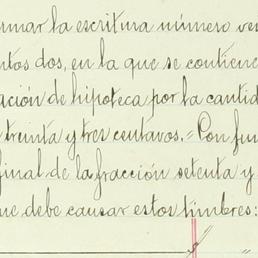 rmar la escritura número ve
ntos dos, en la que se contiene
ación de hipoteca por la cantid
treinta y tres centavos. = Con fun
final de la fracción setenta y
ue debe causar estos timbres: